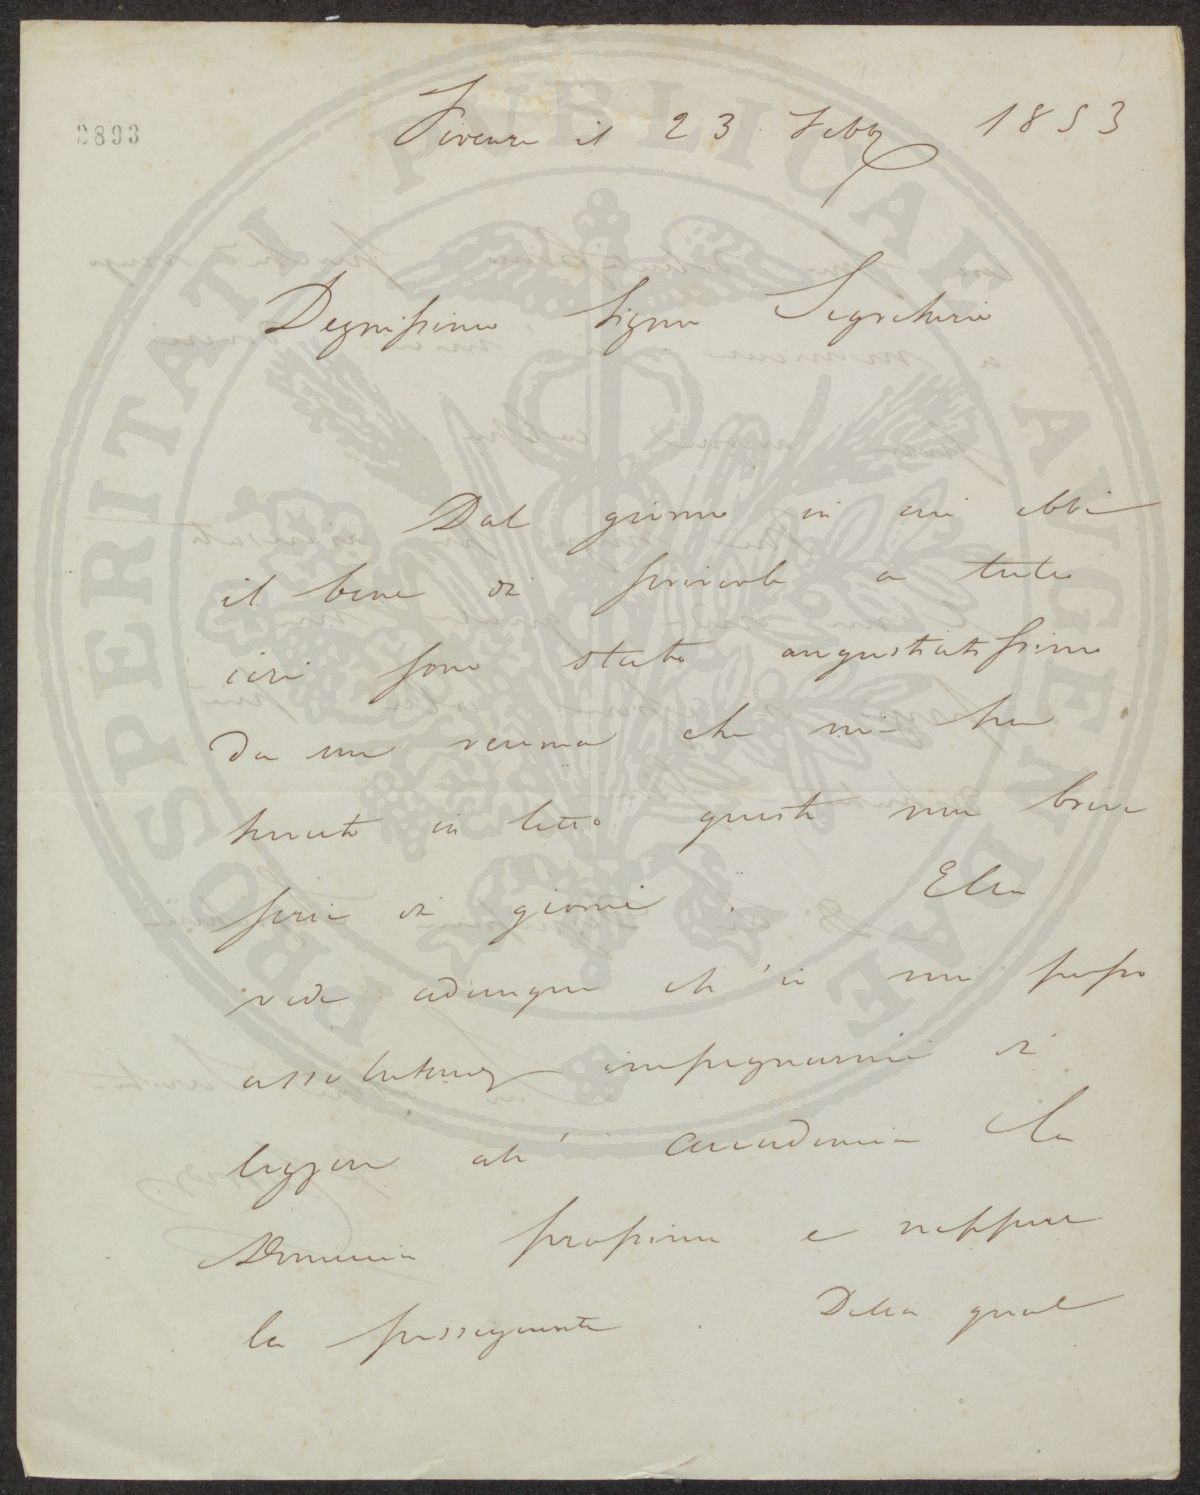 2893
Firenze il 23 Febb 1853
Degnissimo Signor Segretario
Dal giorno in cui ebbi
il bene di scriverle a tutto
ieri sono stato angustiatissimo
da un reuma che mi ha
tenuto in letto questa non breve
serie di giorni. Ella
vede adunque ch'io non posso
assolutamte impegnarmi di
leggere all' accademia la
Domenica prossima e neppure
la susseguente. Della qual
PROSPERITATI PUBLICAE AVGENDAE